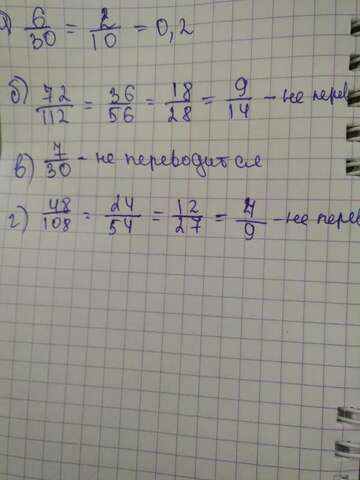 ) 6/30 = 2/10 = 0,2
б) 72/112 = 36/56 = 18/28 = 9/14 - не перев
в) 7/30 - не переводится
г) 48/108 = 24/54 = 12/27 = 4/9 - не перев